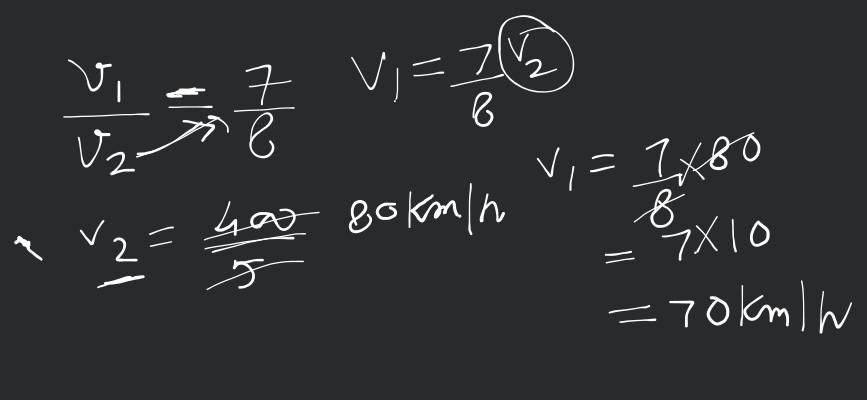 v₁/v₂ = 7/8
v₁ = 7/8 v₂
v₂ = 400/5 80km/h
v₁ = 7/8 × 80
= 7×10
= 70km/h